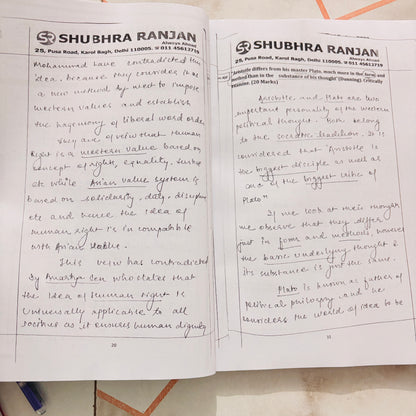 SR SHUBHRA RANJAN
Always Ahead
25, Pusa Road, Karol Bagh, Delhi 110005. ☏ 011 45613719
Mohammad have contradicted this
idea. because they considers it as
a new method by west to impose
western values and establish
the hegemony of liberal word order.
They are of veiw that Human
Right is a western value based on
concept of rights, equality, justice
etc while Asian value system is
based on solidarity, duty, discipline
etc and hence the idea of
human right is in compatible
with Asian value.
This veiw has contradicted
by Amartya Sen who states that
the idea of Human right is
universally applicable to all
socities as it ensures human dignity
20
SR SHUBHRA RANJAN
Always Ahead
25, Pusa Road, Karol Bagh, Delhi 110005. ☏ 011 45613719
"Aristotle differs from his master Plato, much more in the form and
method than in the substance of his thought (Dunning). Critically
Examine. (20 Marks)
Aristotle, and Plato are two
important personality of the western
political thought. Both belong
to the socratic tradition. It is
considered that Aristotle is
the biggest disciple as well as
one of the biggest critic of
Plato"
If we look at their thought
we observe that they differ
just in form and methods, however
the basic underlying thought &
its substance is just the same.
Plato is known as father of
political philosophy, and he
considers the world of idea to be